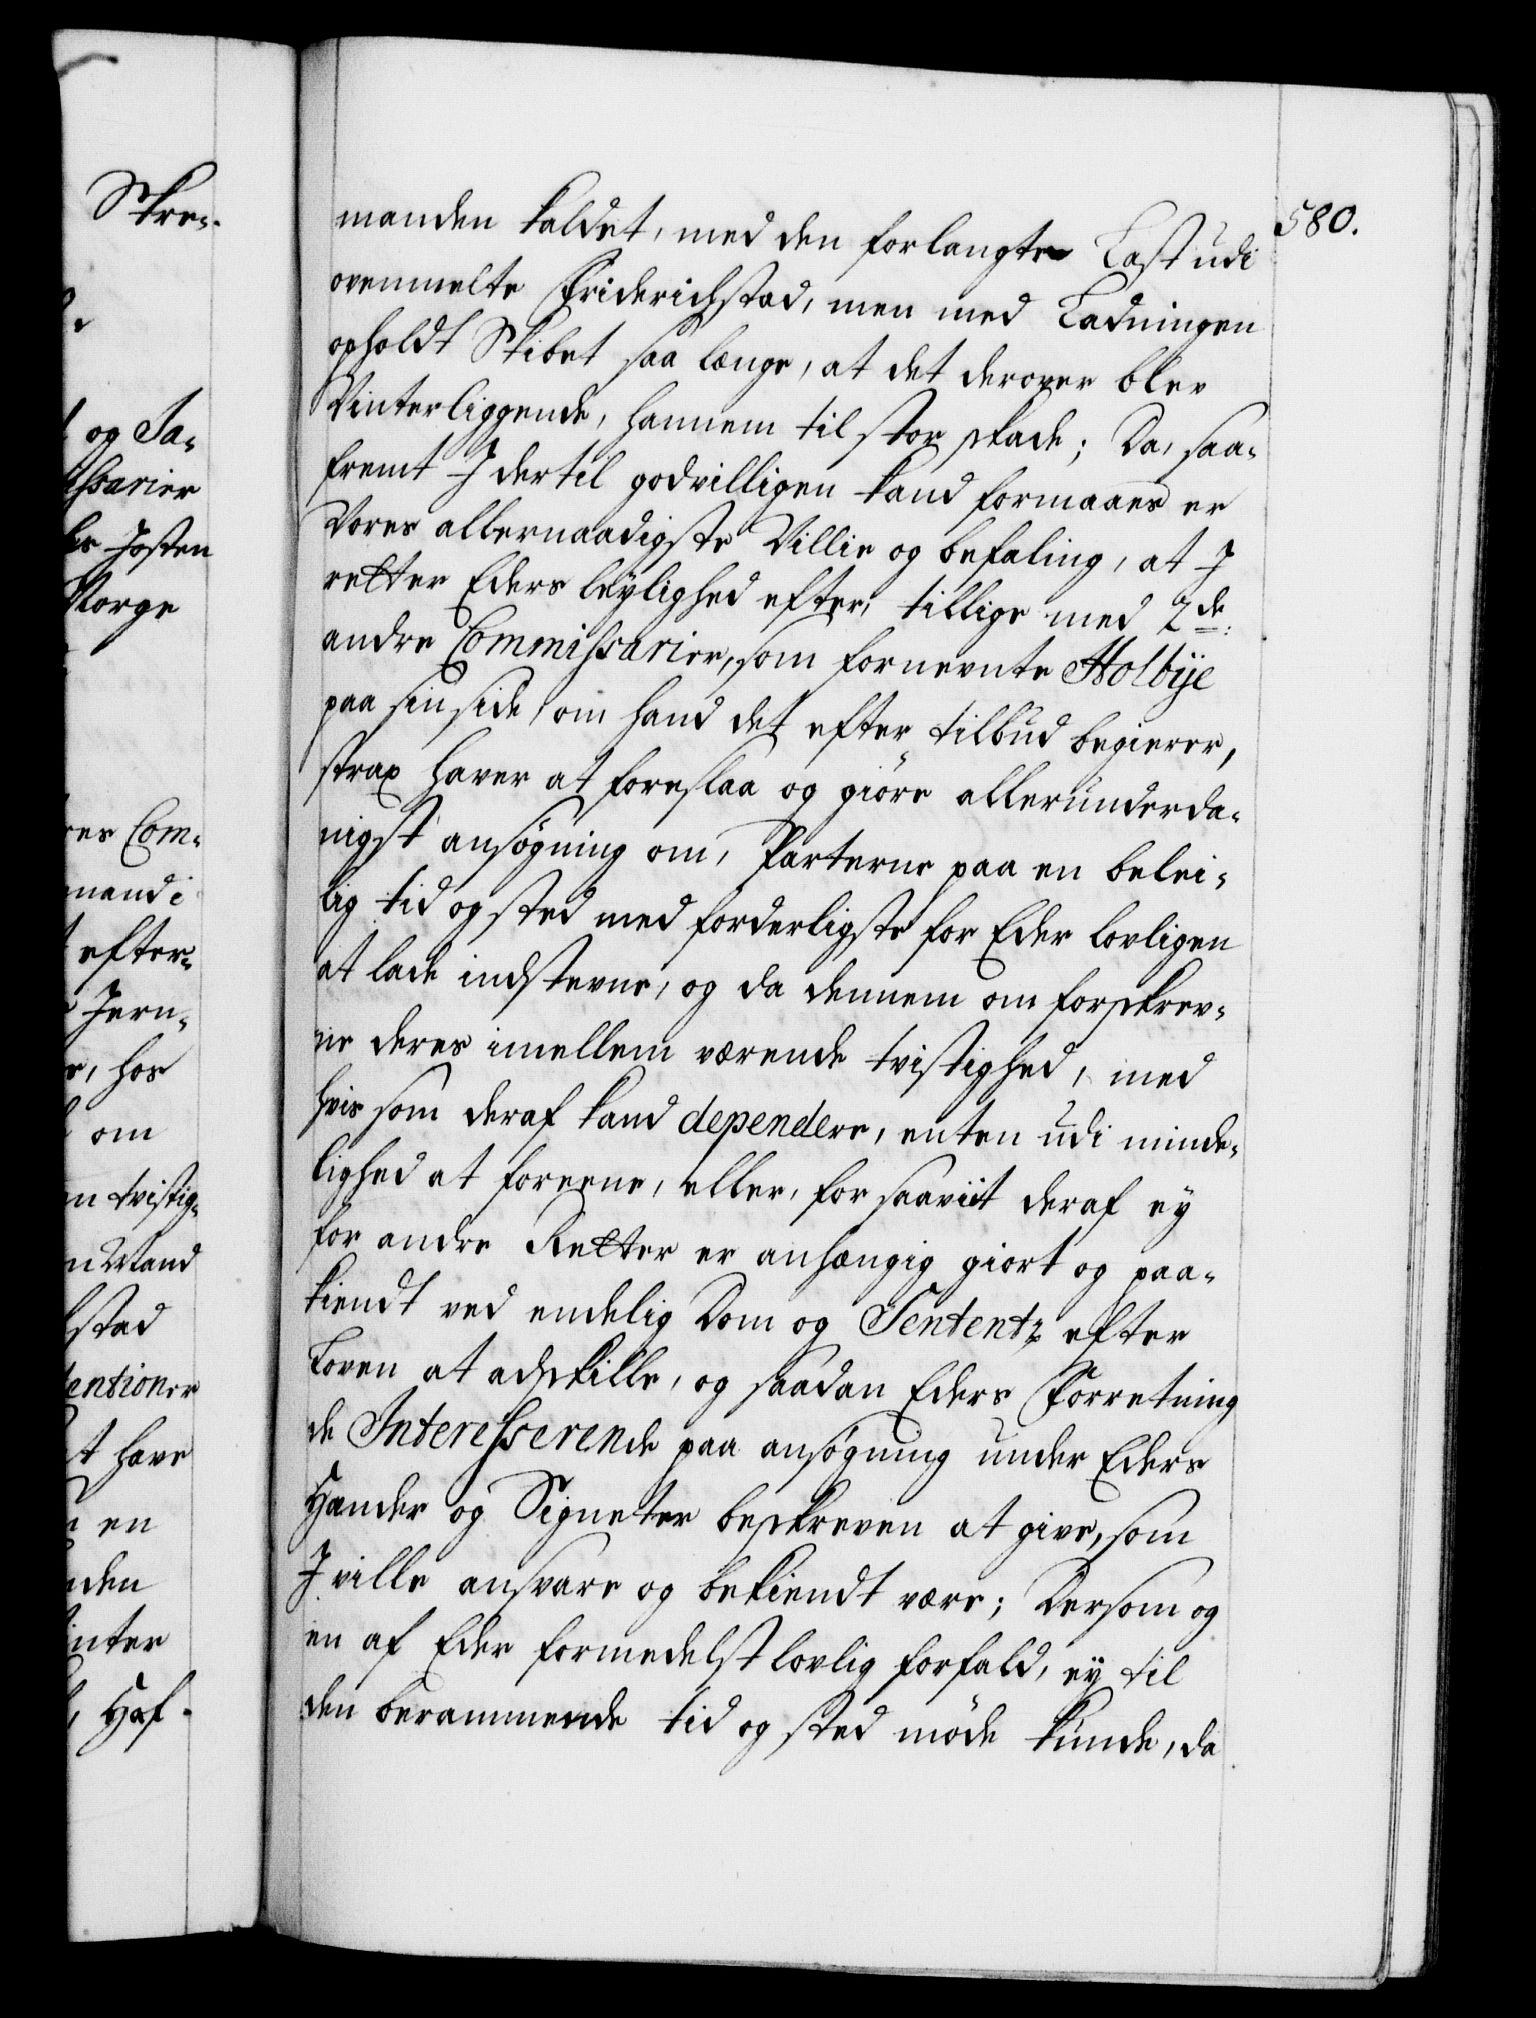 Skre-
og Ja-
issarier
Josten
Norge
res Com-
mand i
efter-
Jern-
hos
om
tvistig-
Mand
stad
tentioner
t have
en
den
inter
Haf-
580.
manden kaldet, med den forlangte Last udi
ovenmelte Friderichstad, men med Ladningen
opholdt Skibet saa længe, at det derover blev
Vinterliggende, hannem til stor skade; Da, saa-
fremt I dertil godvilligen kand formaaes er
Vores allernaadigste Villie og befaling, at I
retter Eders leylighed efter, tillige med 2de:
andre Commissarier, som fornevnte Holbÿe
paa sin side, om hand det efter tilbud begierer,
strax haver at foreslaa og giöre allerunderda-
nigst ansøgning om, Parterne paa en belei-
lig tid og sted med forderligste for Eder lovligen
at lade indstevne, og da dennem om forskrev-
ne deres imellem værende tvistighed, med
hvis som deraf kand dependere, enten udi minde-
lighed at foreene, eller, for saaviit deraf ey
for andre Retter er anhængig giort og paa-
kiendt ved endelig Dom og Sententz efter
Loven at adskille, og saadan Eders Forretning
de Interesserende paa ansøgning under Eders
Hænder og Signeter beskreven at give, som
I ville ansvare og bekiendt være; Dersom og
en af Eder formedelst lovlig forfald, ey til
den berammende tid og sted möde kunde, da